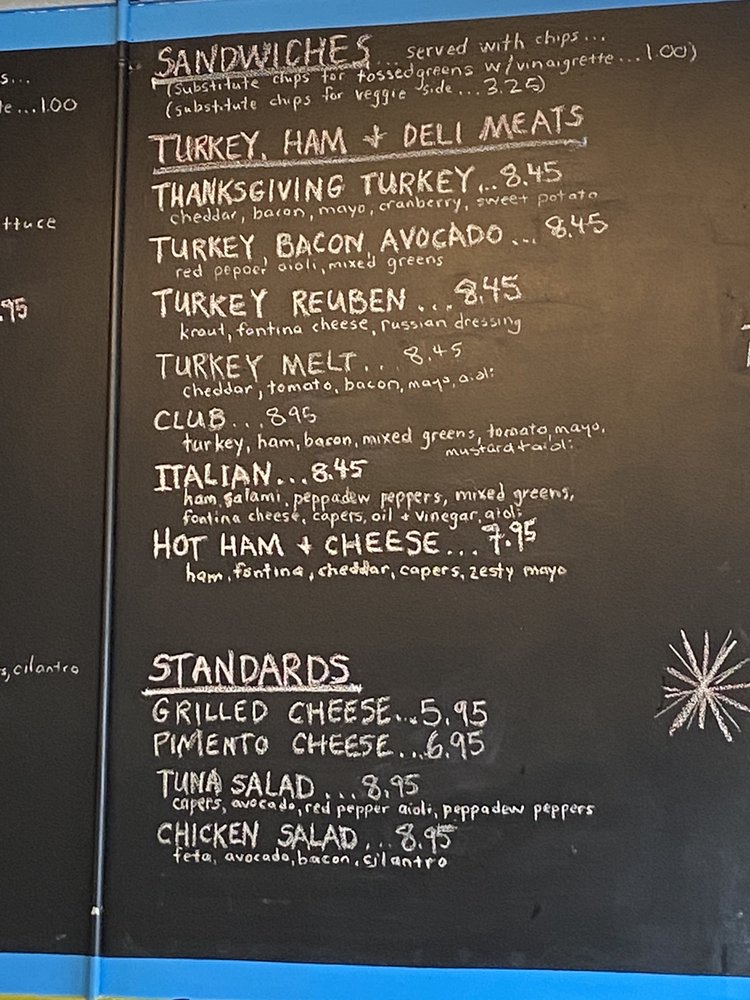 s...
te...1.00
ttuce
.95
s, cilantro
SANDWICHES ... served with chips...
(substitute chips for tossed greens w/vinaigrette...1.00)
(substitute chips for veggie side...3.25)
TURKEY, HAM + DELI MEATS
THANKSGIVING TURKEY...8.45
cheddar, bacon, mayo, cranberry, sweet potato
TURKEY, BACON, AVOCADO... 8.45
red pepper aioli, mixed greens
TURKEY REUBEN...8.45
kraut, fontina cheese, russian dressing
TURKEY MELT... 8.45
cheddar, tomato, bacon, mayo, aioli
CLUB...8.95
turkey, ham, bacon, mixed greens, tomato, mayo,
mustard + aioli
ITALIAN...8.45
ham, salami, peppadew peppers, mixed greens,
fontina cheese, capers, oil + vinegar, aioli
HOT HAM + CHEESE... 7.95
ham, fontina, cheddar, capers, zesty mayo
STANDARDS
GRILLED CHEESE...5.95
PIMENTO CHEESE...6.95
TUNA SALAD...8.95
capers, avocado, red pepper aioli, peppadew peppers
CHICKEN SALAD...8.95
feta, avocado, bacon, cilantro